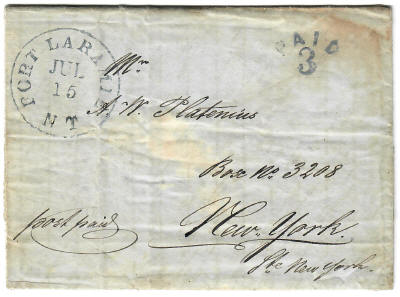 FORT LARAMIE
JUL
15
N T
PAID
3
Mr
A. W. Platenius
Box No 3208
New-York.
Ste New York.
post paid